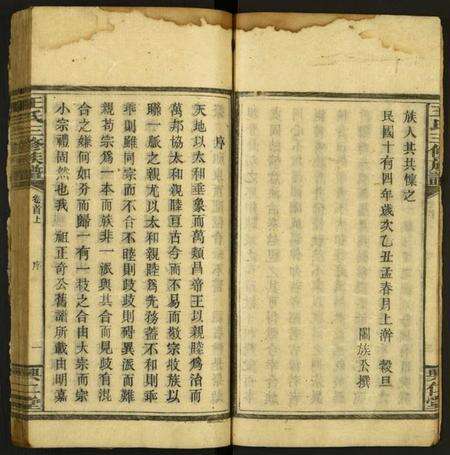 族人其共懍之
民國十有四年歲次乙丑孟春月上澣　穀旦
闔族公撰
王氏三修族譜
序
天地以太和垂象而萬類昌帝王以親睦爲治而
萬邦協太和親睦亘古今而不易而敬宗收族以
聯一脈之親尤以太和親睦爲先務蓋不和則乖
乖則雖同宗而不合不睦則歧歧則碍異派而難
親苟宗爲一本而族非一派與其合而見歧宜混
合之嫌何如分而歸一有一枝之合由大宗而宗
小宗禮固然也我　祖正奇公舊譜所載由明嘉
王氏三修族譜
卷首上
序
一